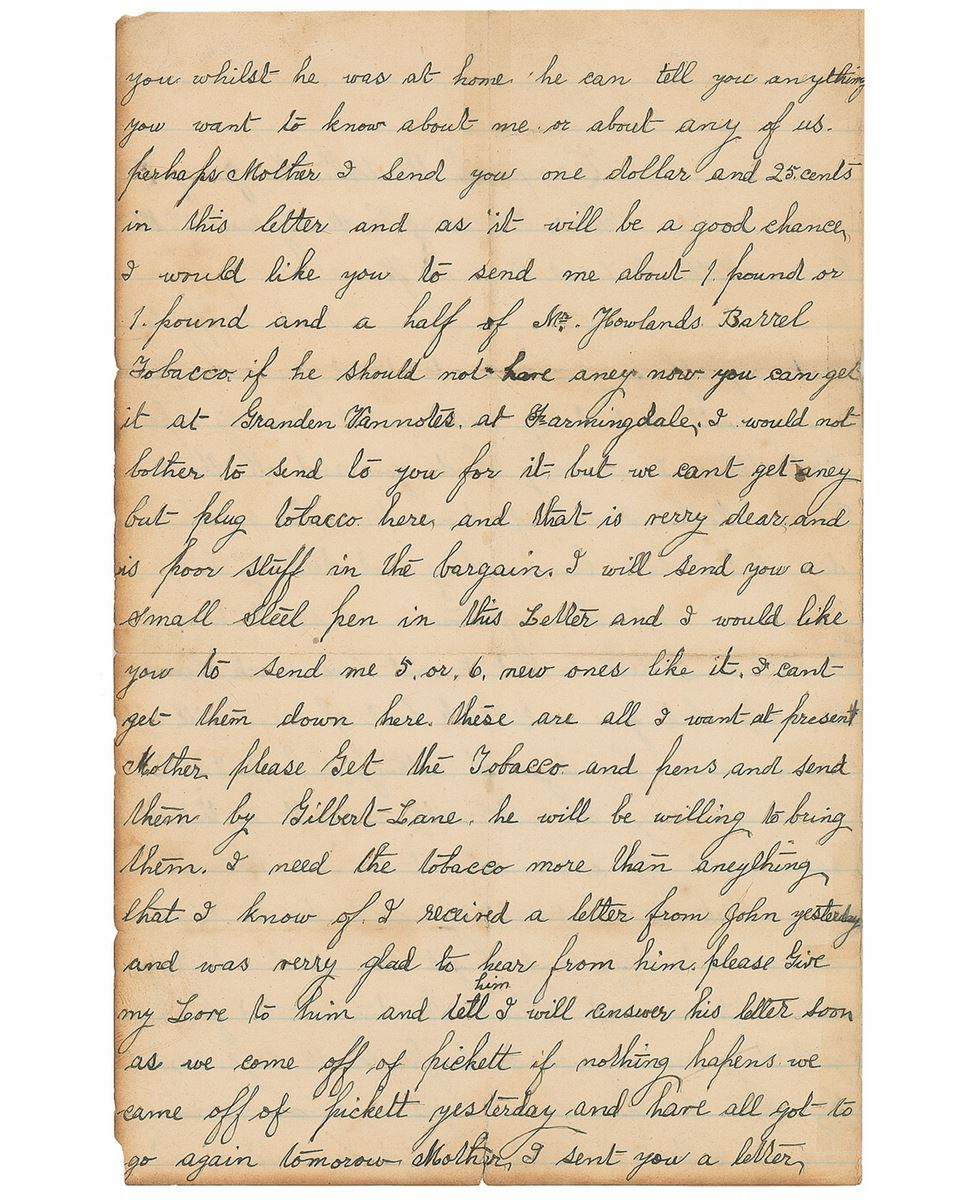 you whilst he was at home he can tell you anything
you want to know about me or about any of us.
perhaps Mother I send you one dollar and 25 cents
in this letter and as it will be a good chance,
I would like you to send me about 1. pound or
1. pound and a half of Mr. Howlands Barrel
Tobacco, if he should not have aney now you can get
it at Granden Vannotes. at Farmingdale, I would not
bother to send to you for it but we cant get aney
but plug tobacco here, and that is verry dear, and
is poor stuff in the bargain. I will send you a
small steel pen in this Letter and I would like
you to send me 5. or. 6. new ones like it. I cant
get them down here. these are all I want at present
Mother, please Get the Tobacco and pens and send
them by Gilbert Lane. he will be willing to bring
them. I need the tobacco more than aneything
that I know of. I received a letter from John yesterday
and was verry glad to hear from him. please Give
my Love to him and tell him I will answer his letter soon
as we come off of pickett if nothing hapens we
came off of pickett yesterday and have all got to
go again tomorow Mother, I sent you a letter,